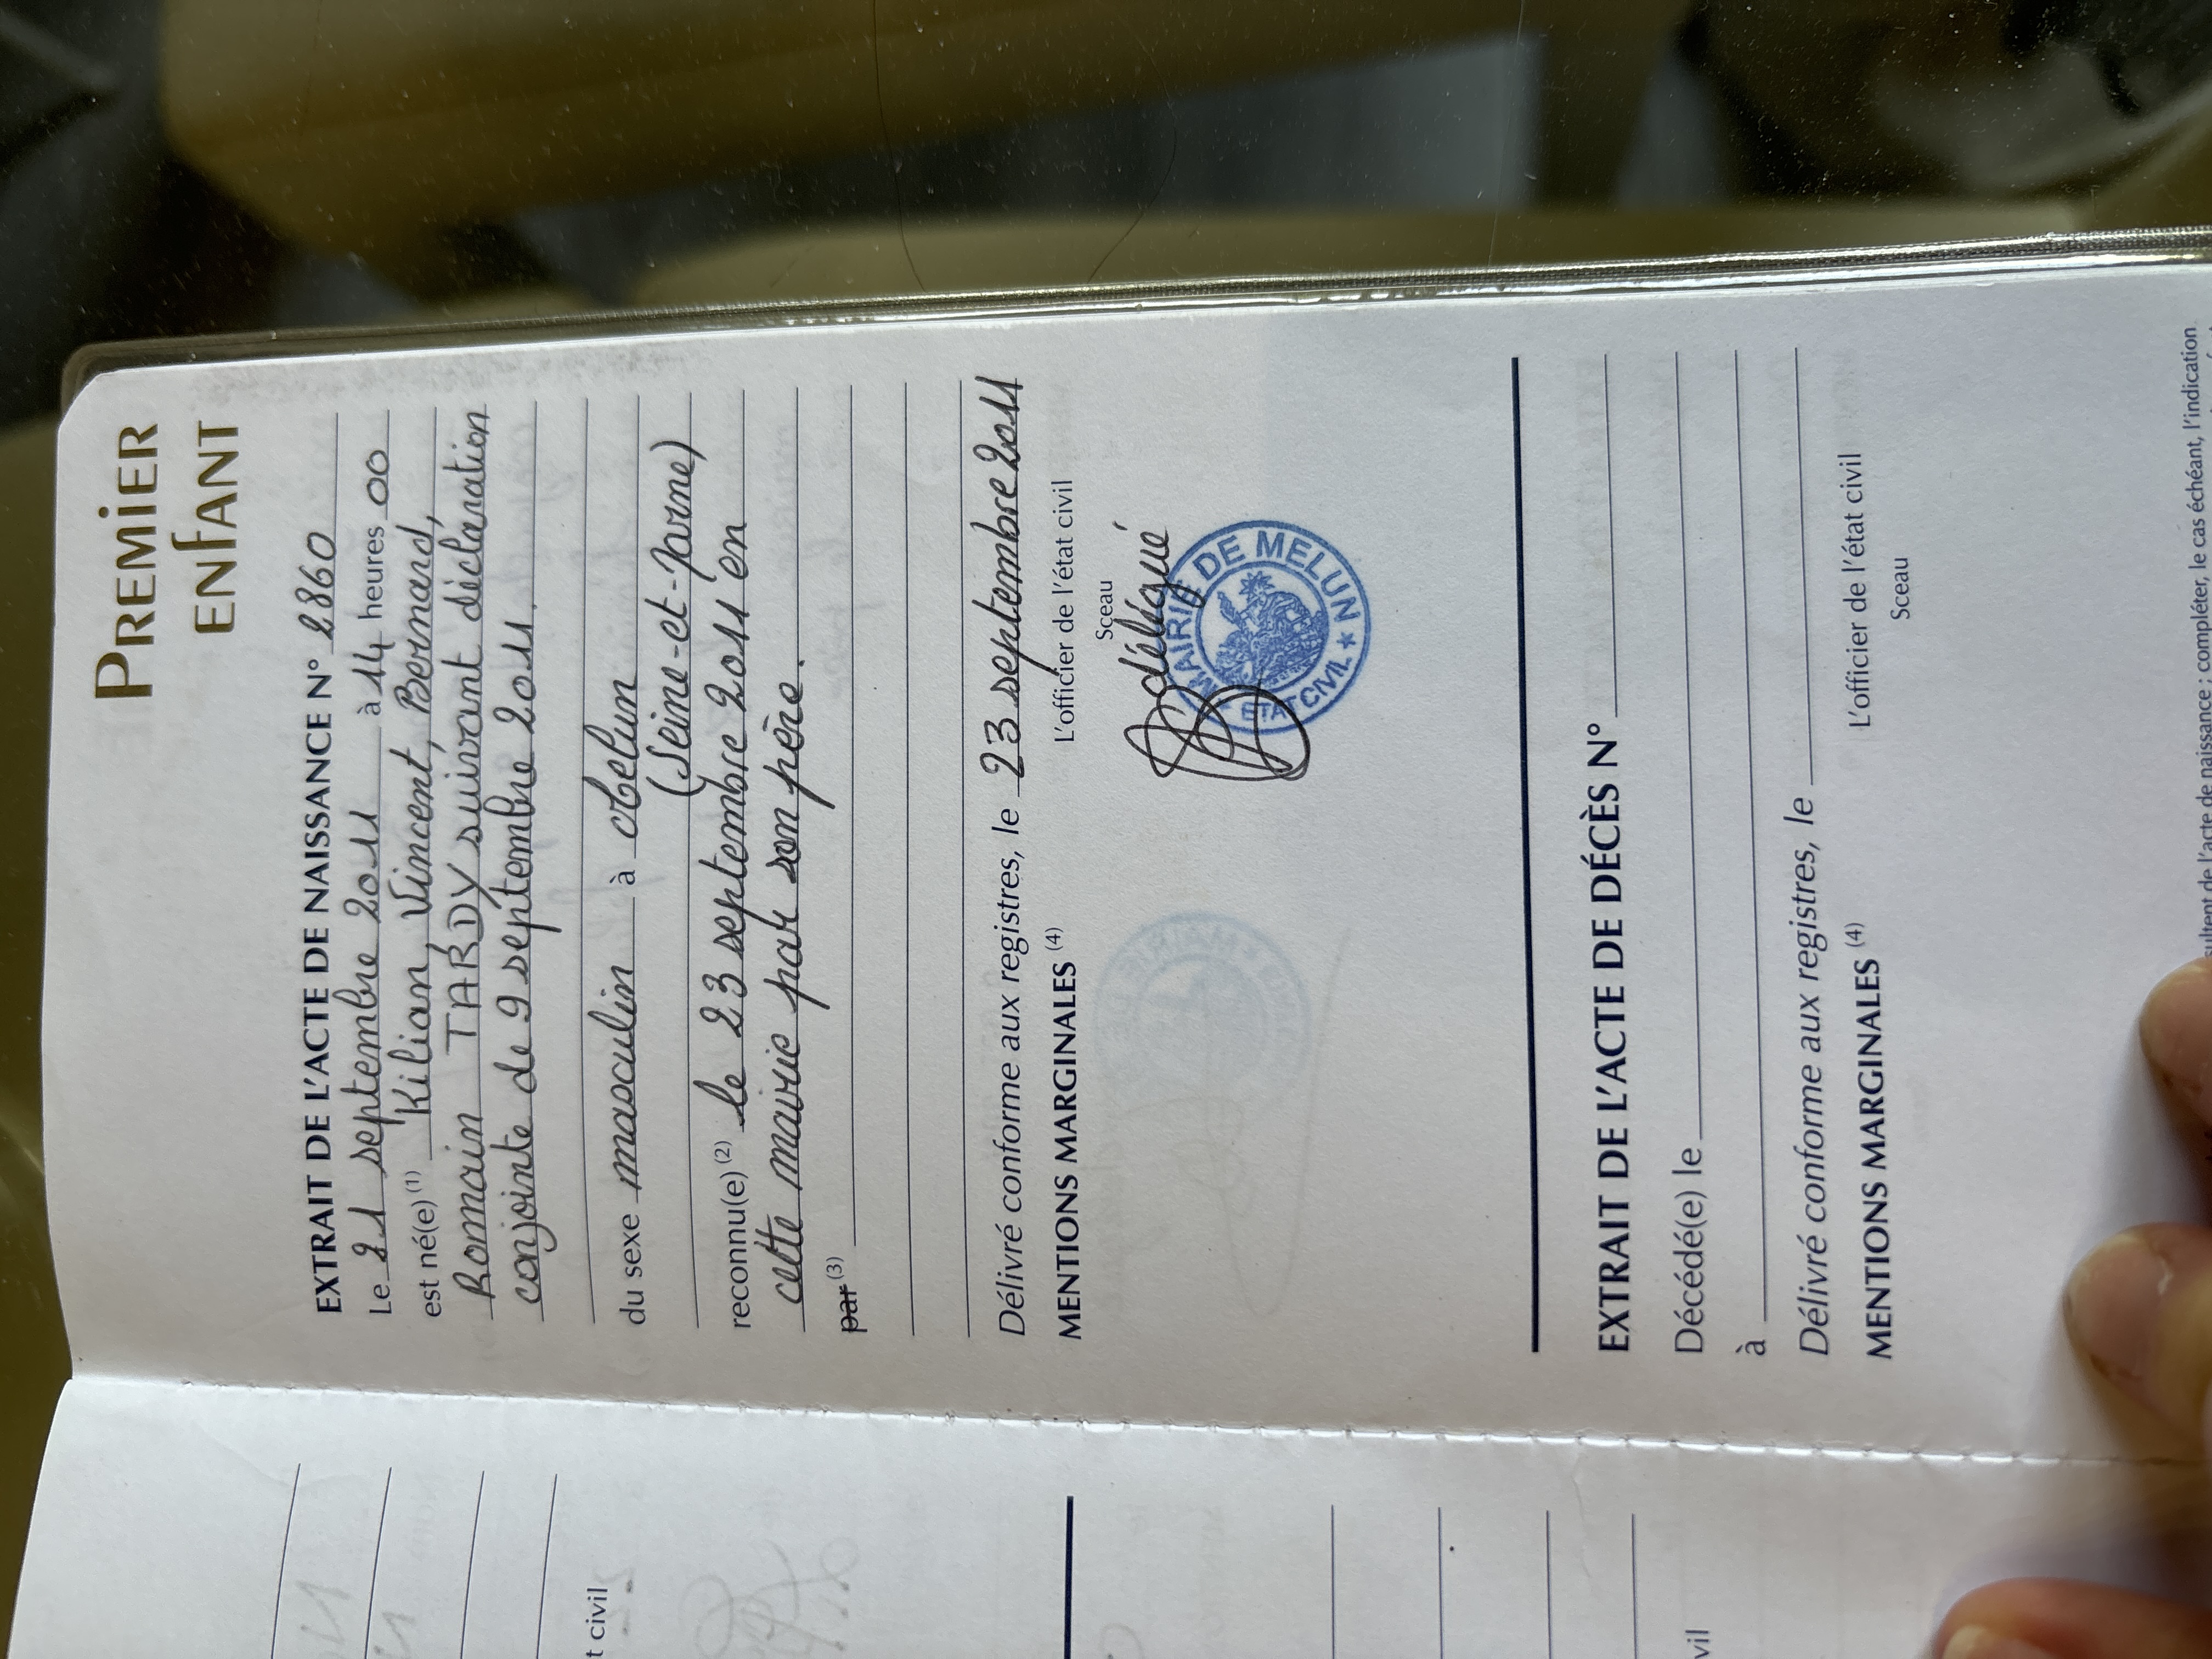 PREMIER
ENFANT
EXTRAIT DE L'ACTE DE NAISSANCE N° 2860
Le 21 septembre 2011 à 14 heures 00
est né(e) (1) Kilian, Vincent, Bernard,
Romain TARDY suivant déclaration
conjointe de 9 septembre 2011.
du sexe masculin à Melun
(Seine-et-Marne)
reconnu(e) (2) le 23 septembre 2011 en
cette mairie par son père.
par (3)
Délivré conforme aux registres, le 23 septembre 2011
MENTIONS MARGINALES (4) L'officier de l'état civil
Sceau
délégué
MAIRIE DE MELUN
★ ETAT CIVIL ★
EXTRAIT DE L'ACTE DE DÉCÈS N°
Décédé(e) le
à
Délivré conforme aux registres, le
MENTIONS MARGINALES (4) L'officier de l'état civil
Sceau
de l'acte de naissance ; compléter, le cas échéant, l'indication
t civil
vil